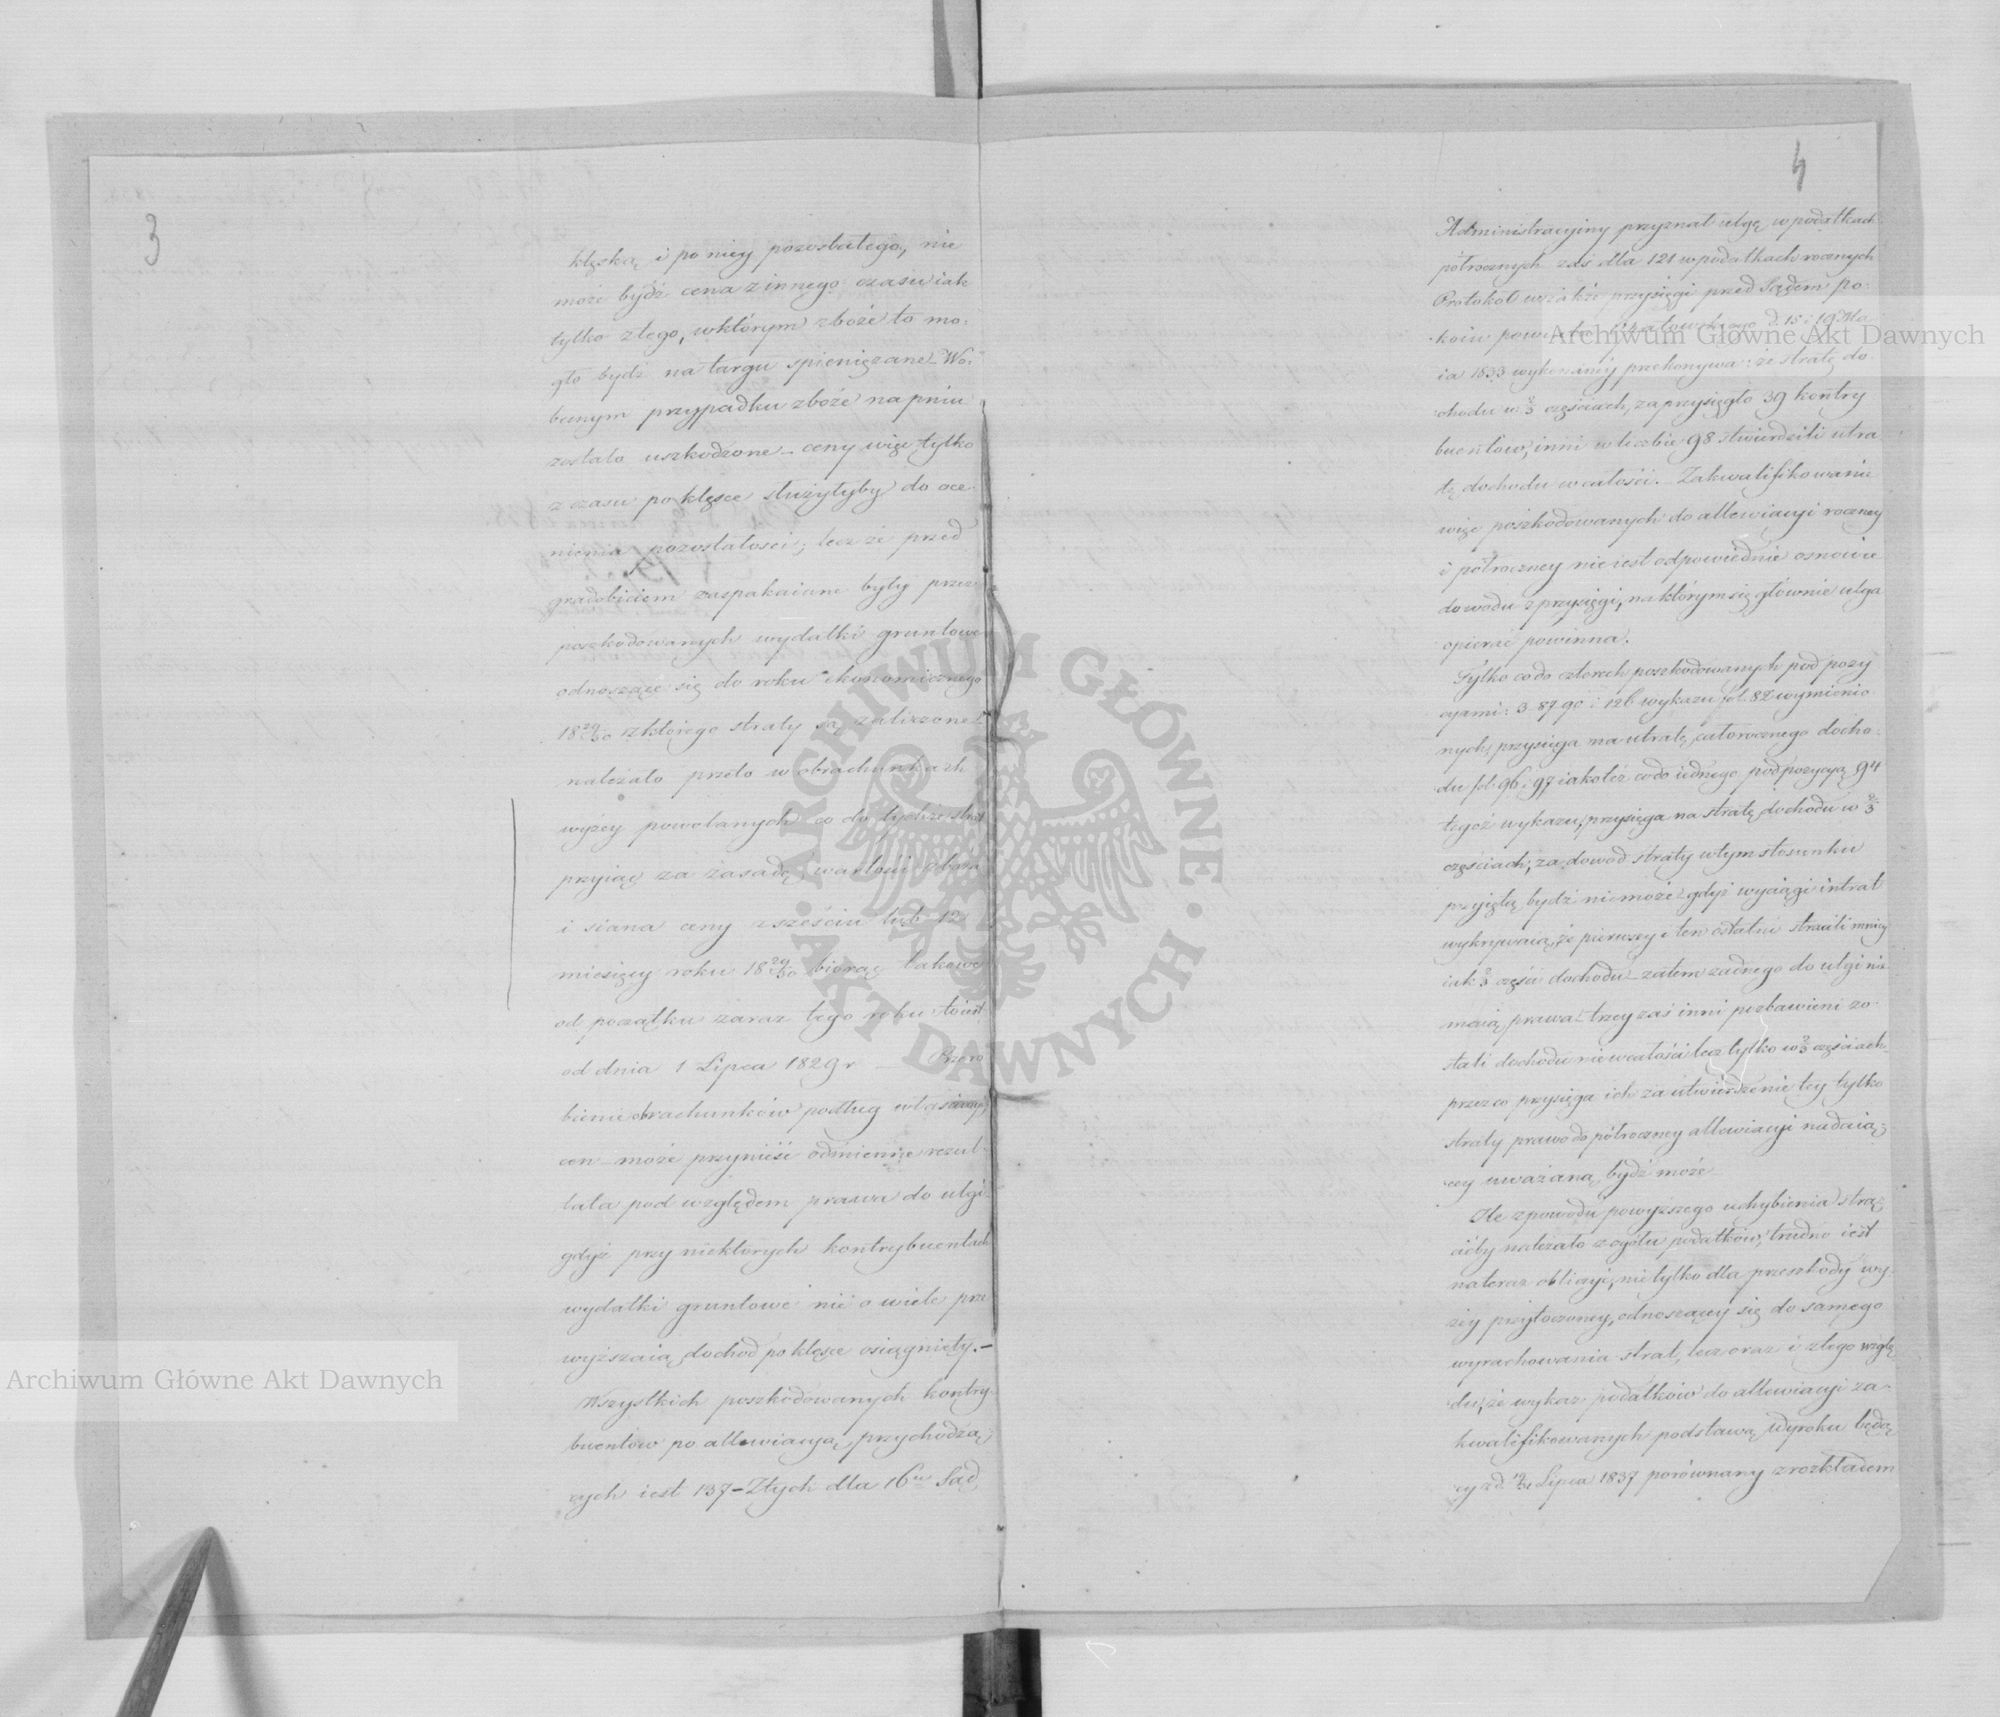 3
klęską i po niey pozostałego, nie
może bydź cena z innego czasu iak
tylko z tego, w którym zboże to mo-
gło bydź na targu spieniężane – W o,,
becnym przypadku zboże na pniu
zostało uszkodzone – ceny więc tylko
z czasu po klęsce służyłyby do oce-
nienia pozostałości; lecz że przed
gradobiciem zaspakaiane były przez
poszkodowanych wydatki gruntowe
odnoszące się do roku ekonomicznego
18 29/30 z którego straty są zaliczone
należało przeto w obrachunkach
wyżey powołanych co do tychże strat
przyiąć za zasadę wartości zboża
i siana ceny z sześciu lub 12
miesięcy roku 18 29/30 biorąc takowe
od początku zaraz tego roku to iest
od dnia 1 Lipca 1829 r – Przero
bienie obrachunków podług właściwych
cen – może przynieść odmienne rezul-
tata pod względem prawa do ulgi
gdyż przy niektorych kontrybuentach
wydatki gruntowe nie o wiele prze
wyższaią dochod po klęsce osiągnięty. –
Wszystkich poszkodowanych kontry-
buentow po allewiacyą przychodzą-
cych iest 137 – Z tych dla 16tu Sąd
4
Administracyiny przyznał ulgę w podatkach
półrocznych zaś dla 121 w podatkach rocznych
Protokoł wszakże przysięgi przed Sądem po-
koiu powiatu d. 15 i 19 Ma-
ia 1833 wykonaney przekonywa: że stratę do-
chodu w 2/3 częściach, zaprzysięgło 39 kontry
buentow, inni w liczbie 98 stwierdzili utra
tę dochodu w całości. – Zakwalifikowanie
więc poszkodowanych do allewiacyi roczney
i półroczney nie iest odpowiednie osnowie
dowodu z przysięgi, na którym się głównie ulga
opierać powinna.
Tylko co do czterech poszkodowanych pod pozy
cyami: 3 – 87 90 i 126 wykazu fol. 82 wymienio
nych, przysięga na utratę całorocznego docho-
du fol. 96 i 97 iakoteż co do iednego pod pozycyą 94
tegoż wykazu, przysięga na stratę dochodu w 2/3
częściach, za dowód straty w tym stosunku
przyiętą bydź nie może gdyż wyciągi intrat
wykrywaią, że pierwszy i ten ostatni stracili mniey
iak 2/3 części dochodu – zatem żadnego do ulgi nie
maią prawa – trzey zaś inni pozbawieni zo-
stali dochodu nie w całości lecz tylko w 2/3 częściach –
przez co przysięga ich za utwierdzenie tey tylko
straty prawo do półroczney allewiacyi nadaią-
cey uważaną bydź może
Ile z powodu powyższego uchybienia strą-
cićby należało z ogółu podatków, trudno iest
na teraz obliczyć, nie tylko dla przeszkody wy-
żey przytoczoney, odnoszącey się do samego
wyrachowania strat, lecz oraz i z tego wzglę
du, że wykaz podatków do allewiacyi za-
kwalifikowanych podstawą Wyroku będą
cy z d. 19/31 Lipca 1837 porównany z rozkładem
Archiwum Główne Akt Dawnych
Archiwum Główne Akt Dawnych
ARCHIWUM GŁÓWNE · AKT DAWNYCH ·